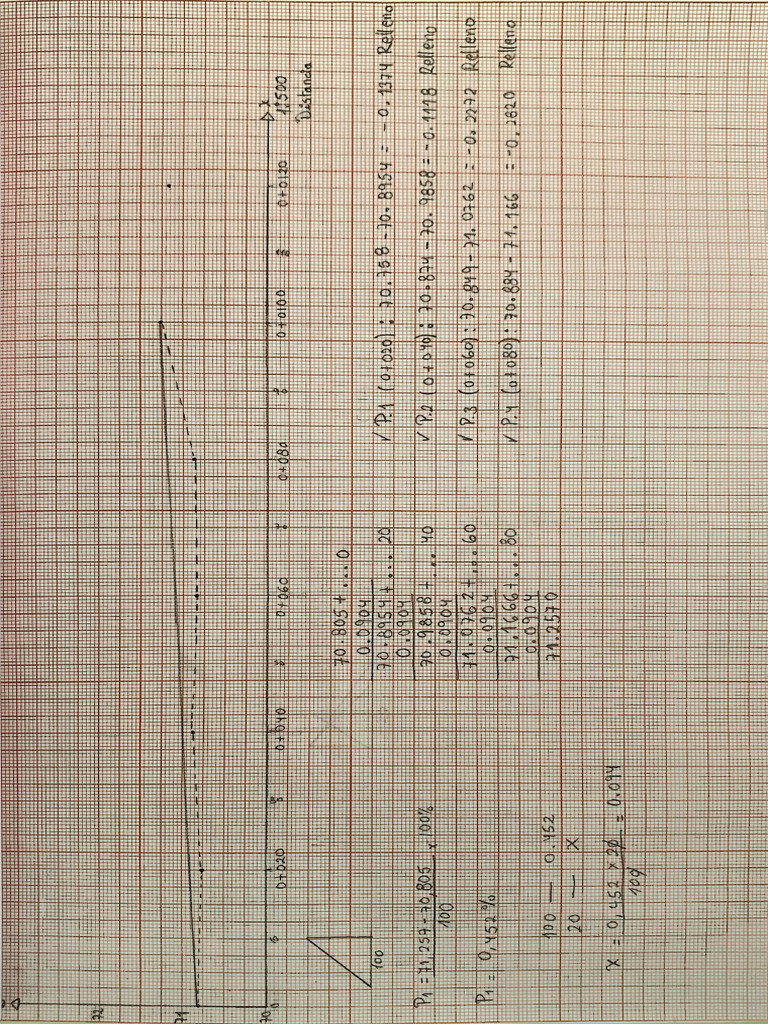 72
71
70
0+020 0+040 0+060 0+080 0+0100 0+0120
x
1:500
Distancia
100
P1 = 71,257-70,805 x 100%
100
P1 = 0,452%
100 — 0.452
20 — X
X = 0,452 x 20 = 0.094
100
70.805+ ... 0
0.0904
70.8954+ ... 20
0.0904
70.9858+ ... 40
0.0904
71.0762+ ... 60
0.0904
71.1666+ ... 80
0.0904
71.2570
✓ P.1 (0+020): 70.758-70.8954 = -0.1374 Relleno
✓ P.2 (0+040): 70.874-70.9858 = -0.1118 Relleno
✓ P.3 (0+060): 70.849-71.0762 = -0.2272 Relleno
✓ P.4 (0+080): 70.884-71.166 = -0,2820 Relleno